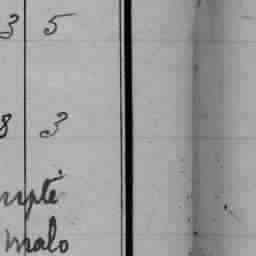 3 5
8 3
mpté
malo